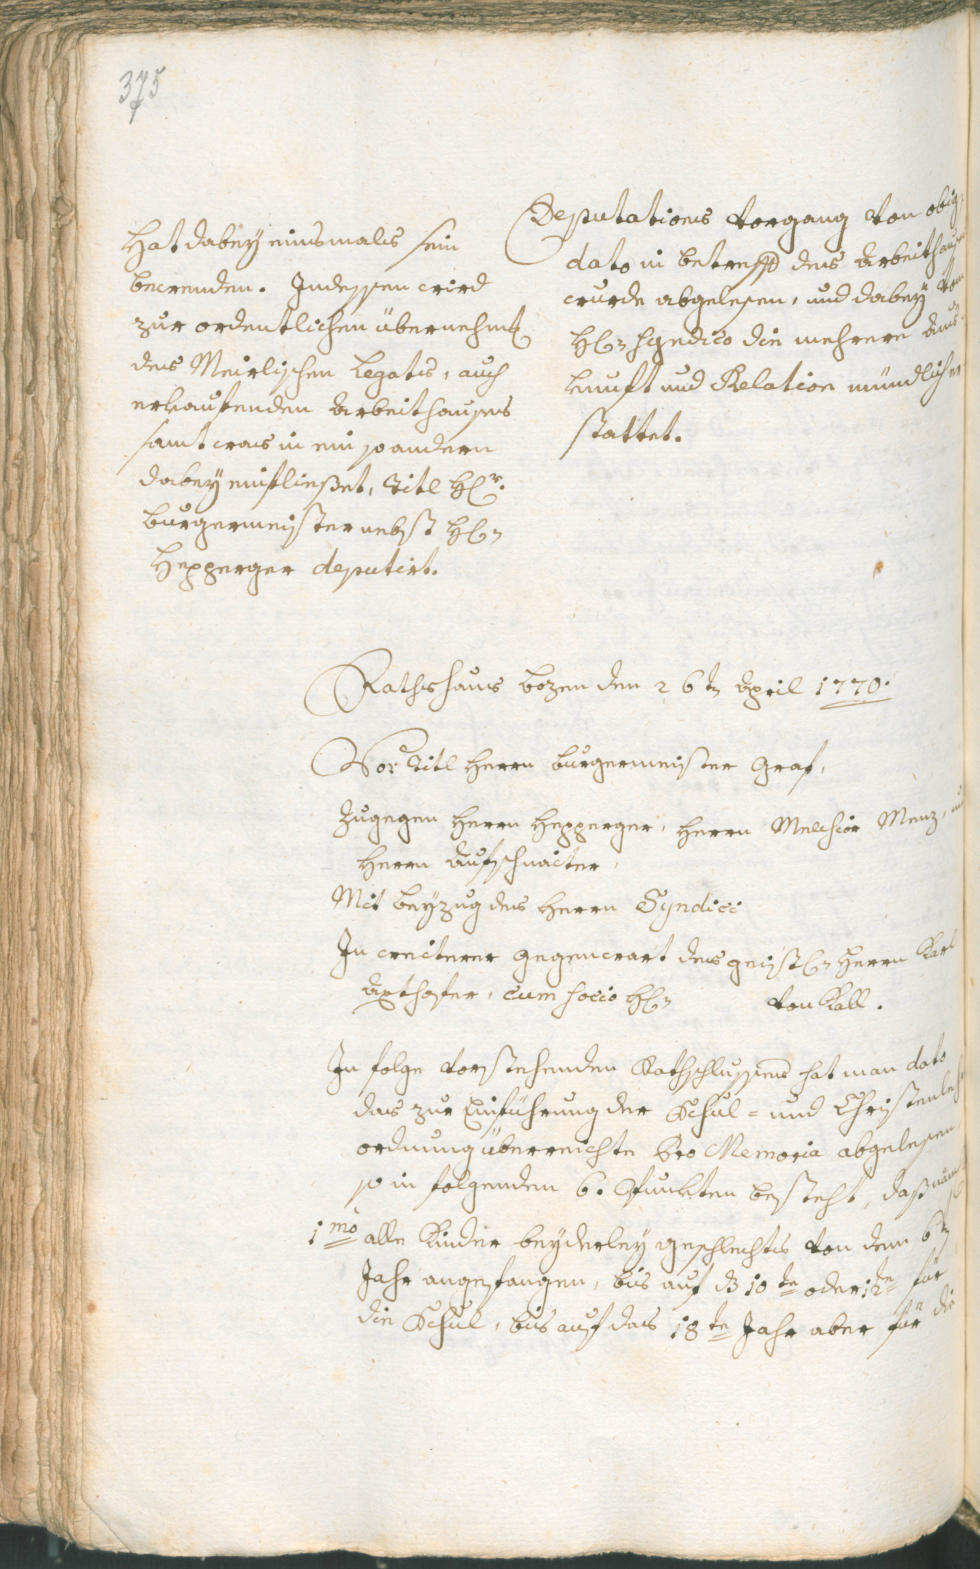 375
Hat dabey einsmals sein
bewenden. Indessen wird
zur ordentlichen übernehmung
des Meirlischen Legats, auch
erkaufenden Arbeithauses
samt was in ein so andern
dabey einfließet, Titl H(er)r.
burgermeister nebst H(er)n
Hepperger deputirt.
Deputations Vorgang Von obig
dato in betreff des Arbeithaus
wurde abgelesen, und dabey Von
H(er)n Syndico die mehrere Aus-
kunft und Relation mündlich er-
stattet.
Rathshaus bozen den 26tn April 1770.
Vor Titl Herrn burgermeister Graf,
Zugegen Herrn Hepperger, Herrn Melchior Menz,
Herrn Aufschnaiter,
Mit beyzug des Herrn Syndici
In weiterer gegenwart des geistl(iche)n Herrn Karl
Axthofer, cum socio H(er)n Von Kall.
In folge Vorstehenden Rathschlusses hat man dato
das zur Einführung der Schul- und Christenlehr
ordnung überreichte Pro Memoria abgelesen
so in folgenden 6. Punkten besteht, daß
1mo alle Kinder beyderley geschlechts Von dem 6tn
Jahr angefangen, bis auf d(as) 10te oder 12te für
die Schul, bis auf das 18te Jahr aber für die